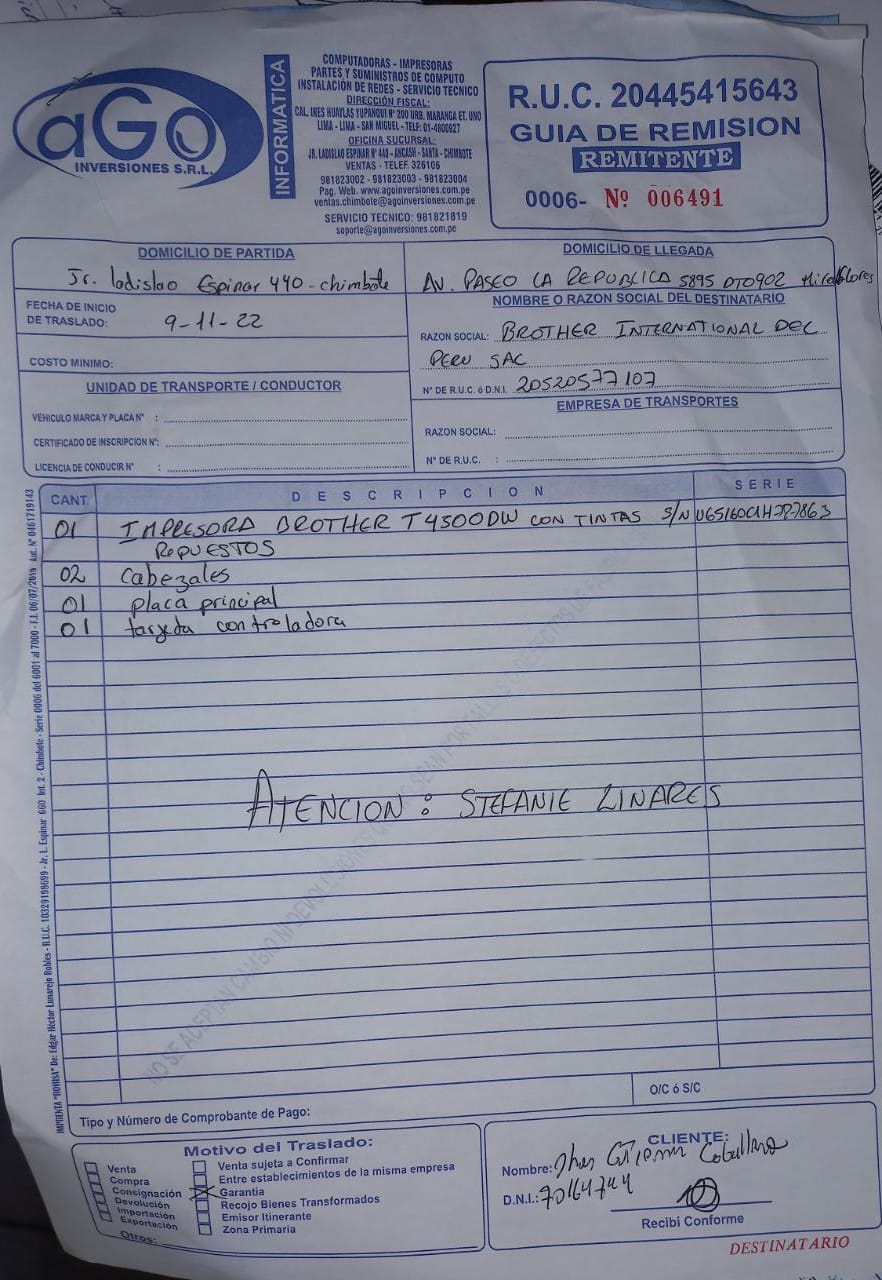 aGo
INVERSIONES S.R.L.
INFORMATICA
COMPUTADORAS - IMPRESORAS
PARTES Y SUMINISTROS DE COMPUTO
INSTALACIÓN DE REDES - SERVICIO TECNICO
DIRECCIÓN FISCAL:
CAL. INES HUAYLAS YUPANQUI Nº 200 URB. MARANGA ET. UNO
LIMA - LIMA - SAN MIGUEL - TELF: 01-4600927
OFICINA SUCURSAL:
JR. LADISLAO ESPINAR Nº 440 - ANCASH - SANTA - CHIMBOTE
VENTAS - TELEF. 326105
981823002 - 981823003 - 981823004
Pag. Web. www.agoinversiones.com.pe
ventas.chimbote@agoinversiones.com.pe
SERVICIO TECNICO: 981821819
soporte@agoinversiones.com.pe
R.U.C. 20445415643
GUIA DE REMISION
REMITENTE
0006- Nº 006491
DOMICILIO DE PARTIDA
Jr. ladislao Espinar 440-chimbote
DOMICILIO DE LLEGADA
AV. PASEO LA REPUBLICA 5895 DTO902 Miraflores
FECHA DE INICIO
DE TRASLADO: 9-11-22
COSTO MINIMO:
NOMBRE O RAZON SOCIAL DEL DESTINATARIO
RAZON SOCIAL: BROTHER INTERNATIONAL DEL
PERU SAC
Nº DE R.U.C. ó D.N.I. 20520577107
UNIDAD DE TRANSPORTE / CONDUCTOR
VEHICULO MARCA Y PLACA Nº :
CERTIFICADO DE INSCRIPCION Nº:
LICENCIA DE CONDUCIR Nº :
EMPRESA DE TRANSPORTES
RAZON SOCIAL:
Nº DE R.U.C. :
CANT. DESCRIPCION SERIE
01 IMPRESORA BROTHER T4500DW CON TINTAS S/N U65160C1H787863
REPUESTOS
02 Cabezales
01 placa principal
01 tarjeta controladora
ATENCION : STEFANIE LINARES
NO SE ACEPTAN CAMBIO NI DEVOLUCIONES QUE NO SEAN POR FALLAS O DEFECTOS DE
IMPRENTA "ROMISA" De: Edgar Héctor Limarejo Robles - R.U.C. 10329198699 - Jr. L. Espinar 660 Int. 2 - Chimbote - Serie 0006 del 6001 al 7000 - F.I. 06/07/2019 Aut. Nº 0461719143
O/C ó S/C
Tipo y Número de Comprobante de Pago:
Motivo del Traslado:
Venta
Compra
Consignación
Devolución
Importación
Exportación
Otros:
Venta sujeta a Confirmar
Entre establecimientos de la misma empresa
Garantia
Recojo Bienes Transformados
Emisor Itinerante
Zona Primaria
CLIENTE:
Nombre:
D.N.I.: 70164744
Recibí Conforme
DESTINATARIO